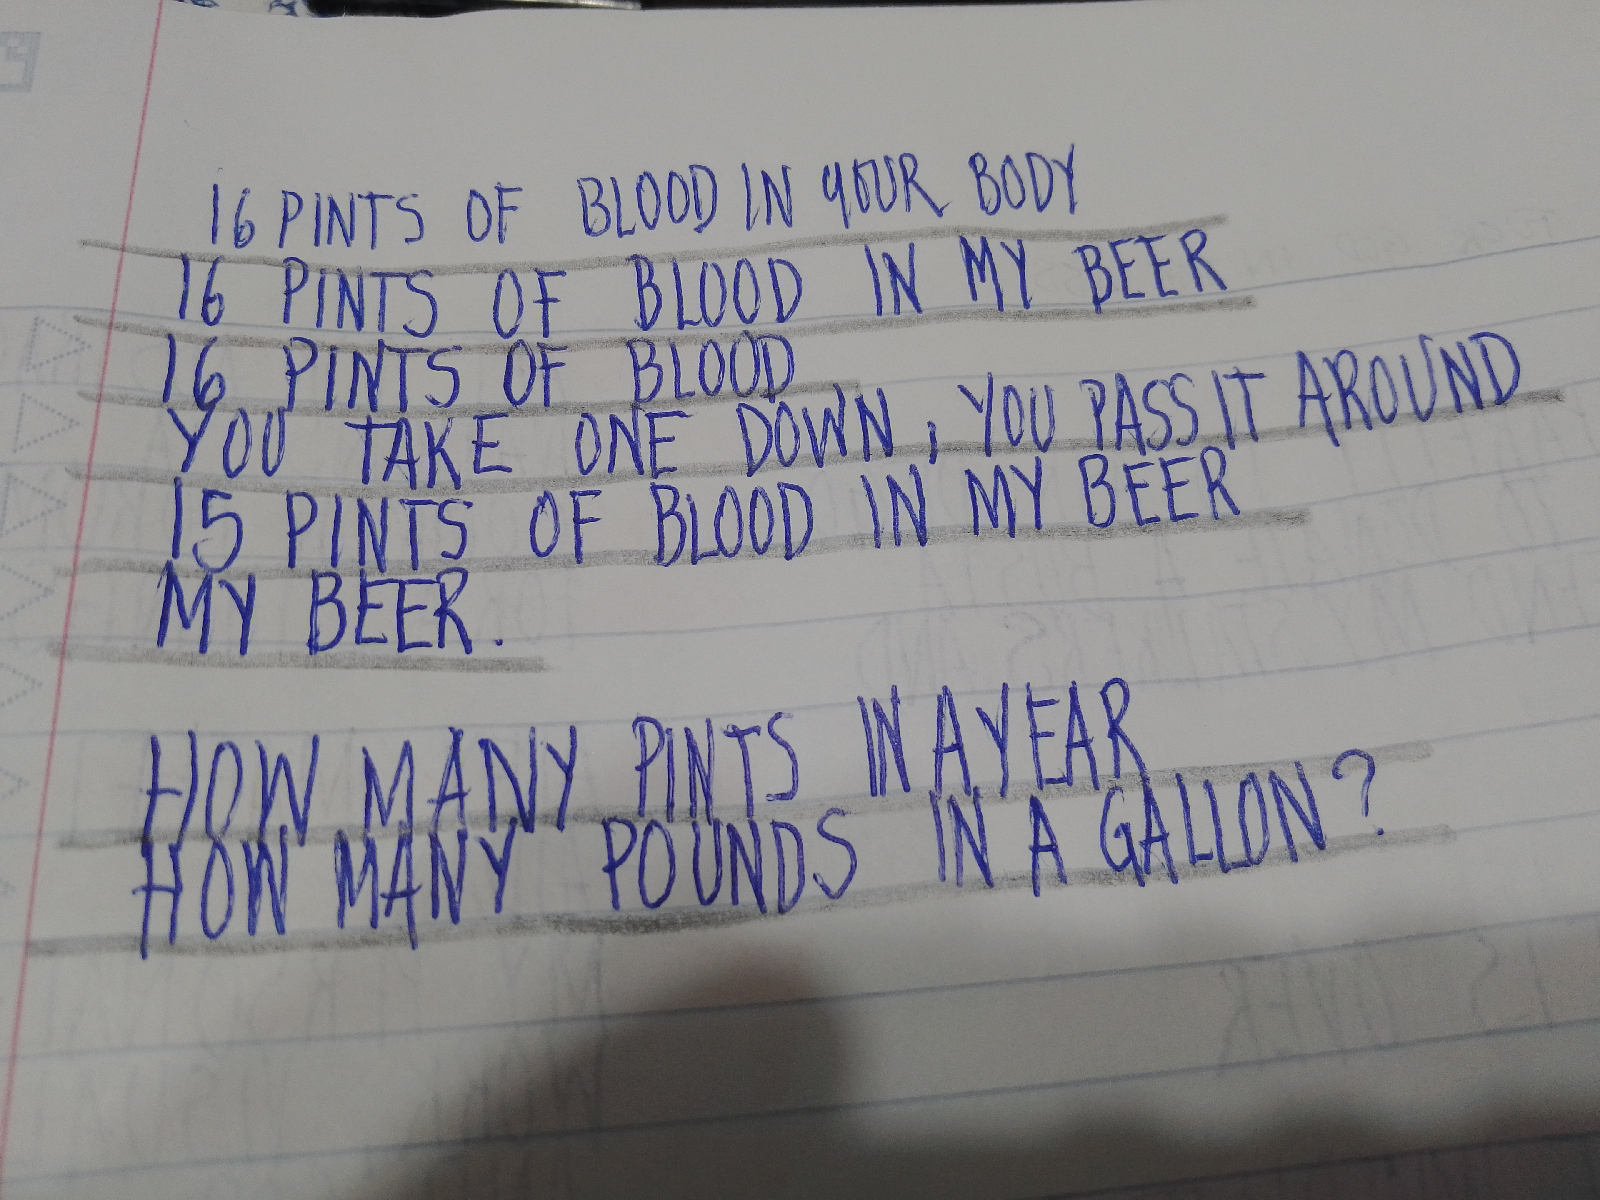 16 PINTS OF BLOOD IN YOUR BODY
16 PINTS OF BLOOD IN MY BEER
16 PINTS OF BLOOD
YOU TAKE ONE DOWN, YOU PASS IT AROUND
15 PINTS OF BLOOD IN MY BEER
MY BEER.
HOW MANY PINTS IN A YEAR
HOW MANY POUNDS IN A GALLON?